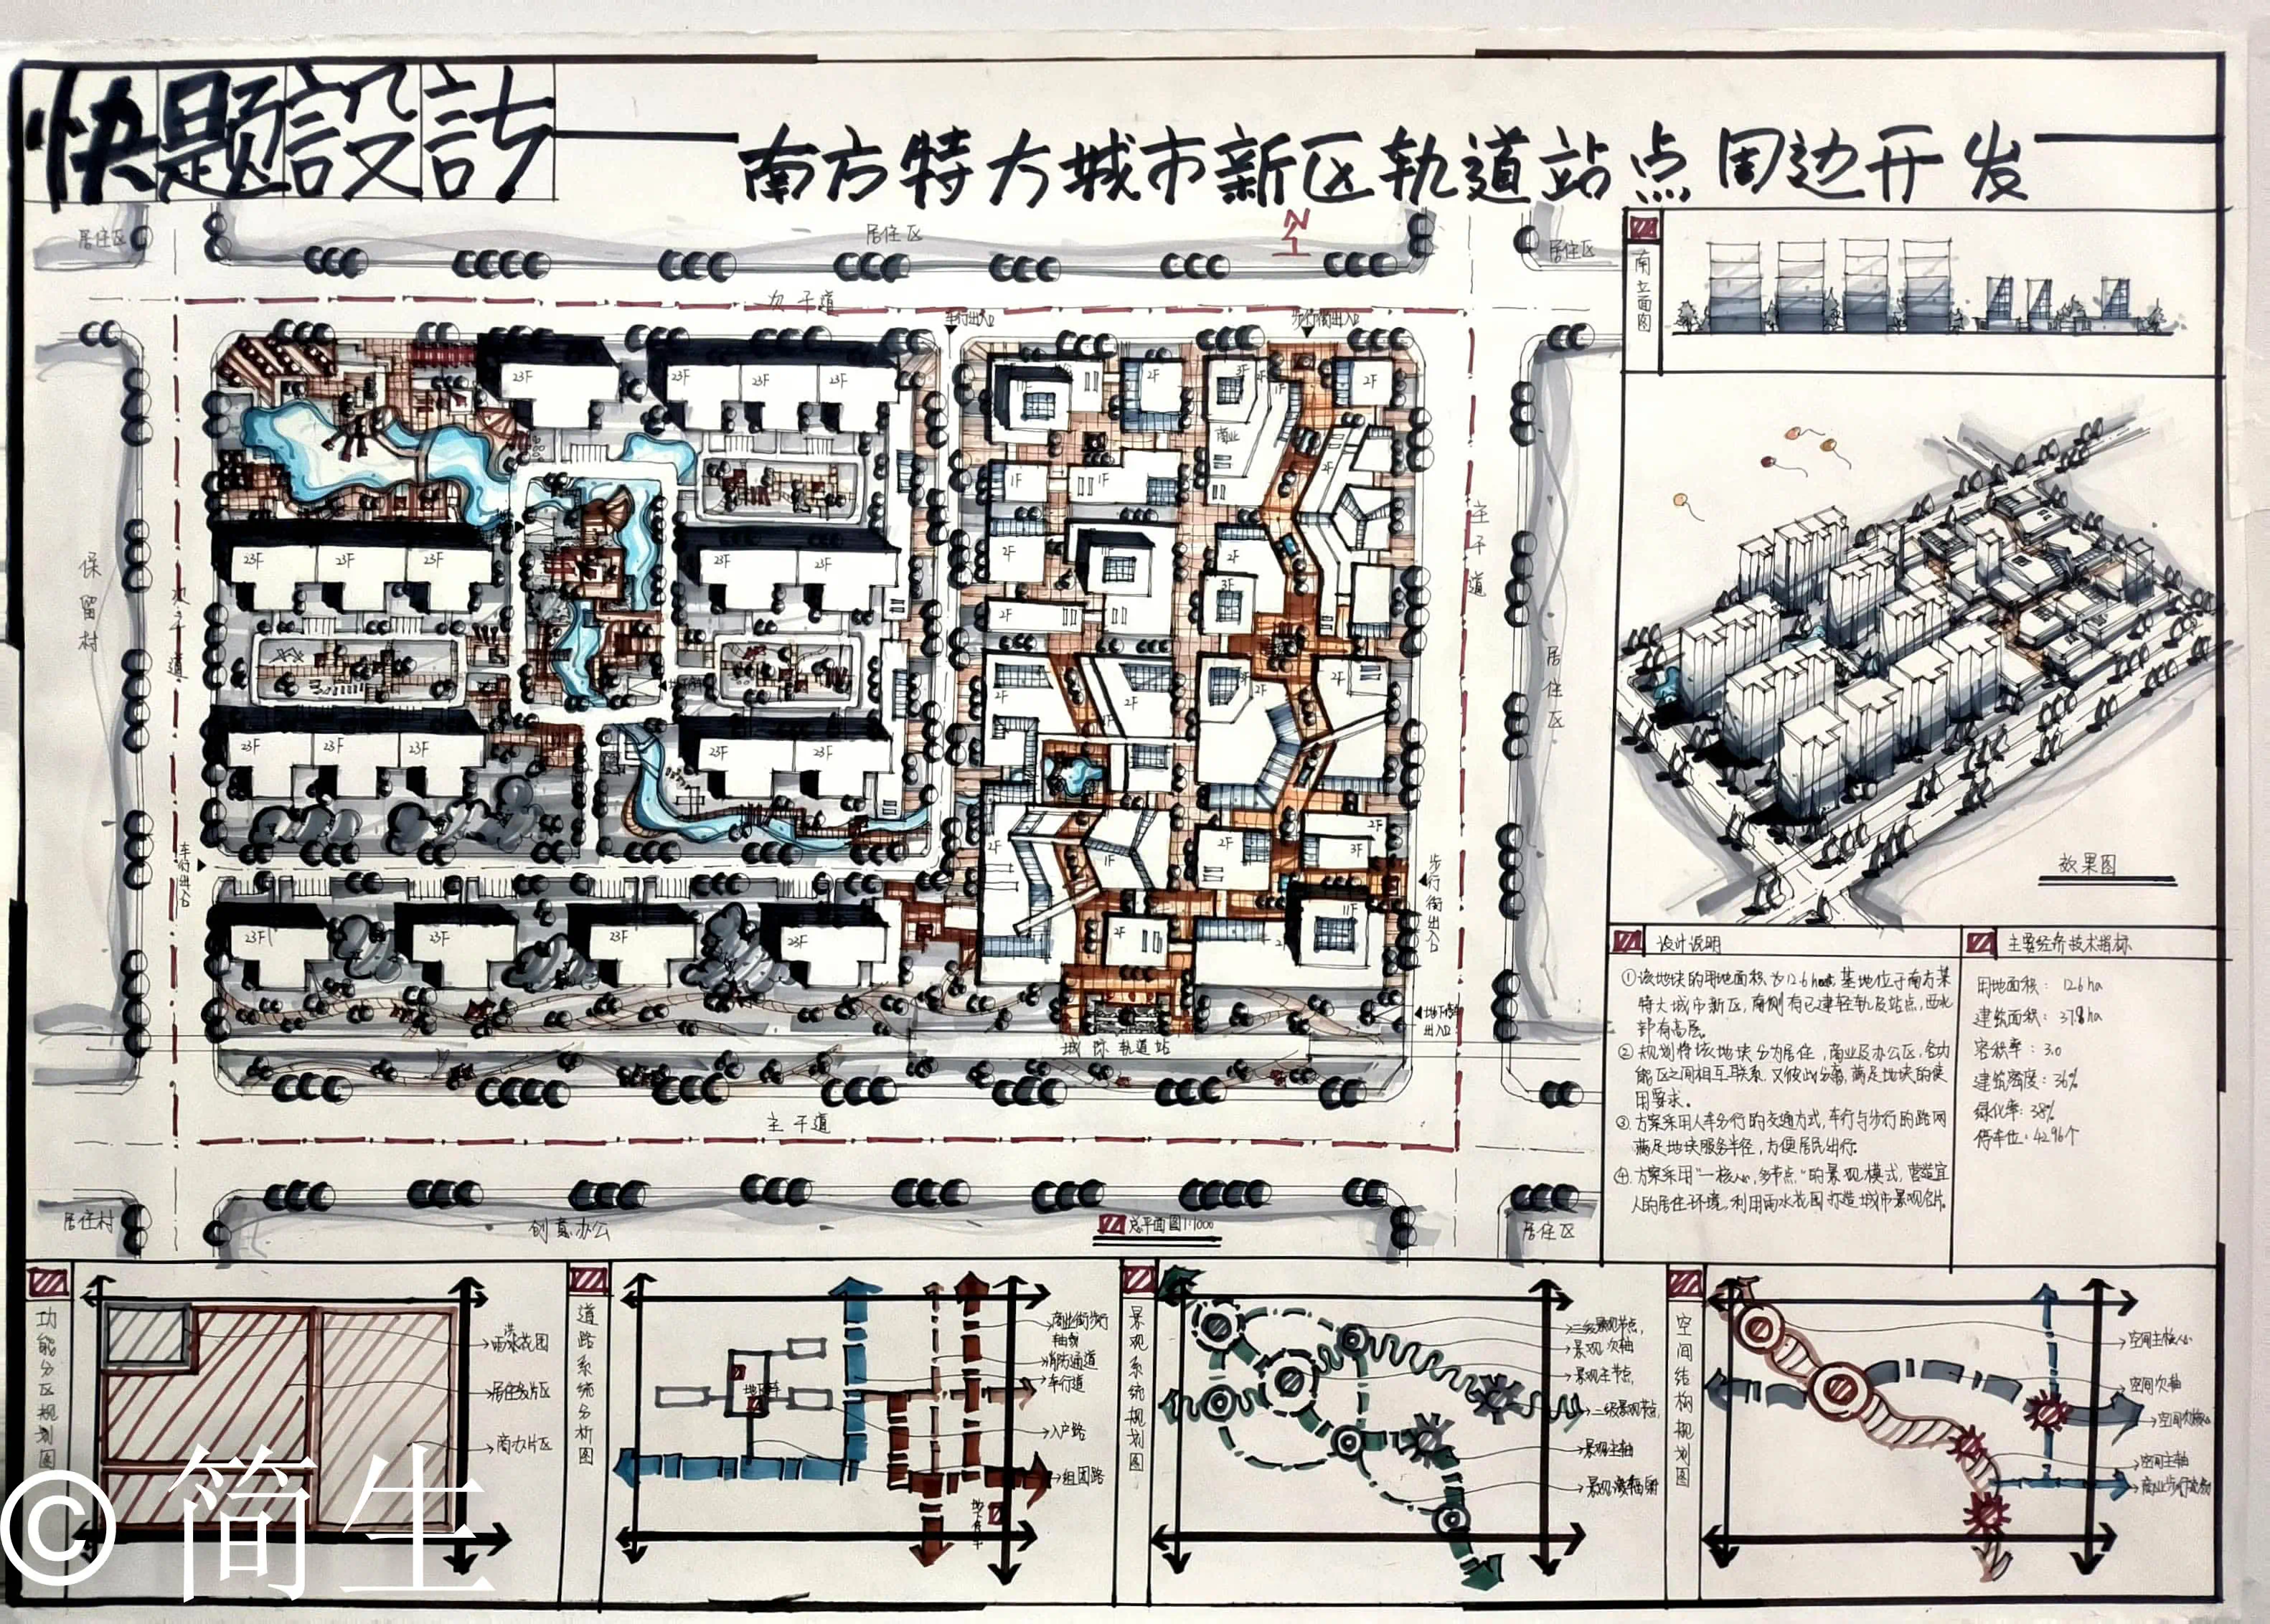 快题設計
南方特大城市新区轨道站点周边开发
居住区
居住区
居住区
N
次干道
车行出入口
步行街出入口
23F
23F
23F
23F
2F
3F
2F
1F
2F
商业
2F
1F
1F
23F
23F
23F
23F
23F
2F
2F
2F
3F
2F
保留村
次干道
主干道
居住区
23F
23F
23F
23F
23F
2F
2F
1F
2F
3F
2F
2F
1F
2F
2F
3F
车行出入口
步行街出入口
23F
23F
23F
23F
2F
11F
地下停车出入口
城际轨道站
主干道
居住村
创意办公
总平面图1:1000
居住区
南立面图
效果图
设计说明
①该地块的用地面积为12.6ha, 基地位于南方某
特大城市新区, 南侧有已建轻轨及站点, 西北
部有高层。
②规划将该地块分为居住, 商业及办公区, 各功
能区之间相互联系又彼此分离, 满足地块的使
用要求。
③方案采用人车分行的交通方式, 车行与步行的路网
满足地块服务半径, 方便居民出行。
④方案采用"一核心, 多节点"的景观模式, 营造宜
人的居住环境, 利用雨水花园打造城市景观名片。
主要经济技术指标
用地面积: 12.6 ha
建筑面积: 37.8 ha
容积率: 3.0
建筑密度: 36%
绿化率: 38%
停车位: 4296个
功能分区规划图
雨水花园
居住片区
商办片区
道路系统分析图
地下车库
商业街步行轴线
消防通道
车行道
入户路
组团路
景观系统规划图
二级景观节点
景观次轴
景观主节点
二级景观节点
景观主轴
景观渗透辐射
空间结构规划图
空间主核心
空间次轴
空间次核心
空间主轴
商业步行轴线
© 简生